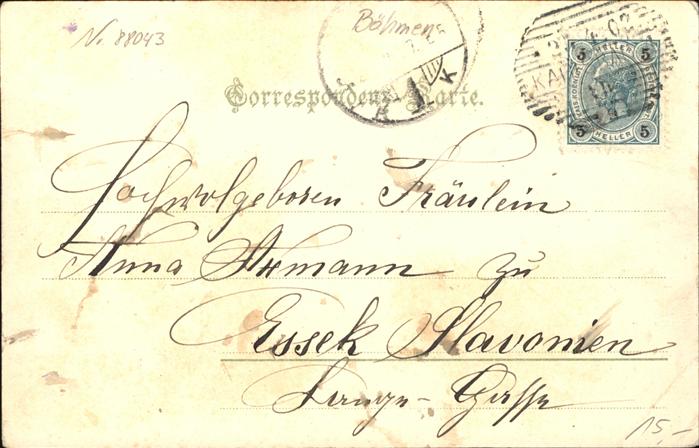 N. 88043
Böhmen
Correspondenz-Karte.
5 HELLER 5
5 HELLER 5
Hochwolgeboren Fräulein
Anna Axmann zu
Essek Slavonien
Lange-Gasse
15,-